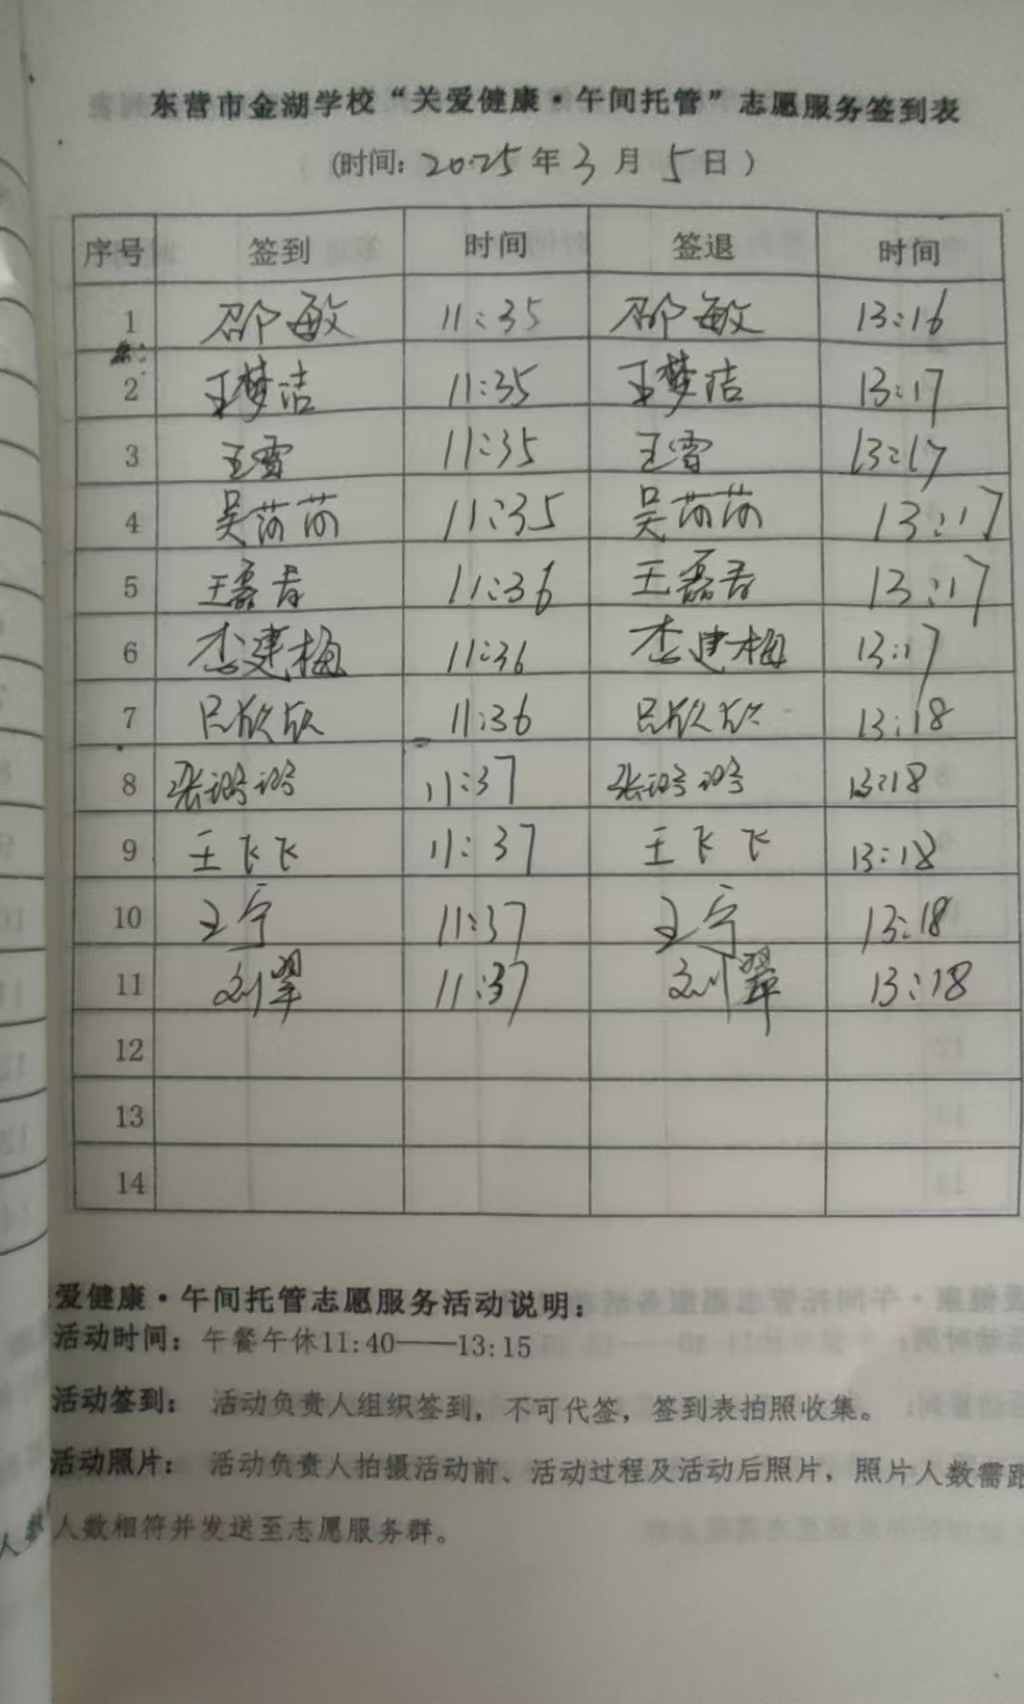 东营市金湖学校“关爱健康·午间托管”志愿服务签到表
(时间: 2025年3月5日)
序号 签到 时间 签退 时间
1 邵敏 11:35 邵敏 13:16
2 王梦洁 11:35 王梦洁 13:17
3 王雪 11:35 王雪 13:17
4 吴莎莎 11:35 吴莎莎 13:17
5 王磊 11:36 王磊 13:17
6 李建梅 11:36 李建梅 13:17
7 吕欣欣 11:36 吕欣欣 13:18
8 张 11:37 张 13:18
9 王飞飞 11:37 王飞飞 13:18
10 王宁 11:37 王宁 13:18
11 刘翠 11:37 刘翠 13:18
12
13
14
爱健康·午间托管志愿服务活动说明:
活动时间: 午餐午休11:40——13:15
活动签到: 活动负责人组织签到,不可代签,签到表拍照收集。
活动照片: 活动负责人拍摄活动前、活动过程及活动后照片,照片人数需跟
人数相符并发送至志愿服务群。